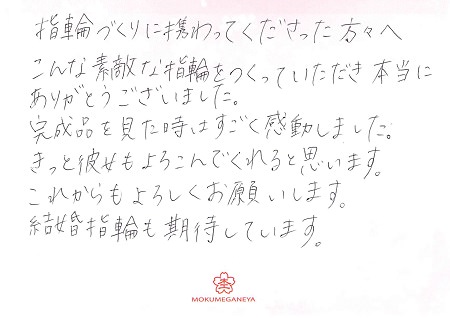 指輪づくりに携わってくださった方々へ
こんな素敵な指輪をつくっていただき本当に
ありがとうございました。
完成品を見た時はすごく感動しました。
きっと彼女もよろこんでくれると思います。
これからもよろしくお願いします。
結婚指輪も期待しています。
MOKUMEGANEYA